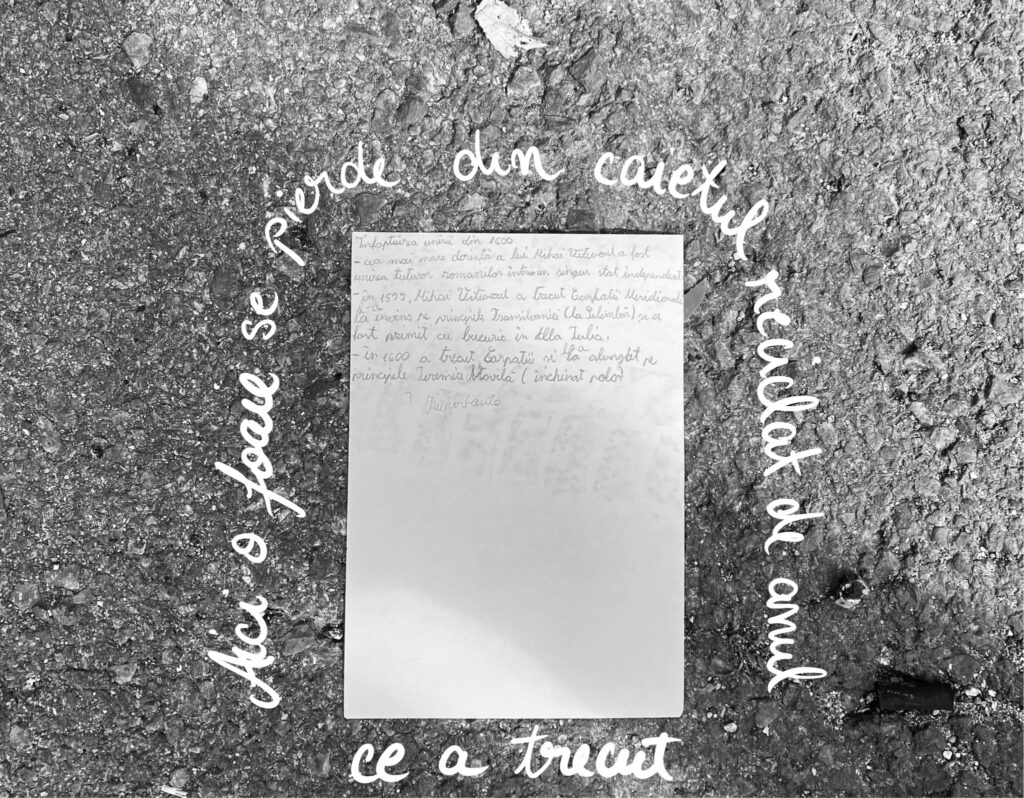 Aici o foaie se pierde din caietul neciclat de anul
ce a trecut
Înfăptuirea unirii din 1600
- cea mai mare dorință a lui Mihai Viteazul a fost
unirea tuturor romanilor întru-un singur stat independent
- în 1599, Mihai Viteazul a trecut Carpații Meridionali
l-a învins pe principele Transilvaniei (la Șelimbăr) și a
fost primit cu bucurie în Alba Iulia.
- în 1600 a trecut Carpații și l-a alungat pe
principele Ieremia Movilă (închinat polon